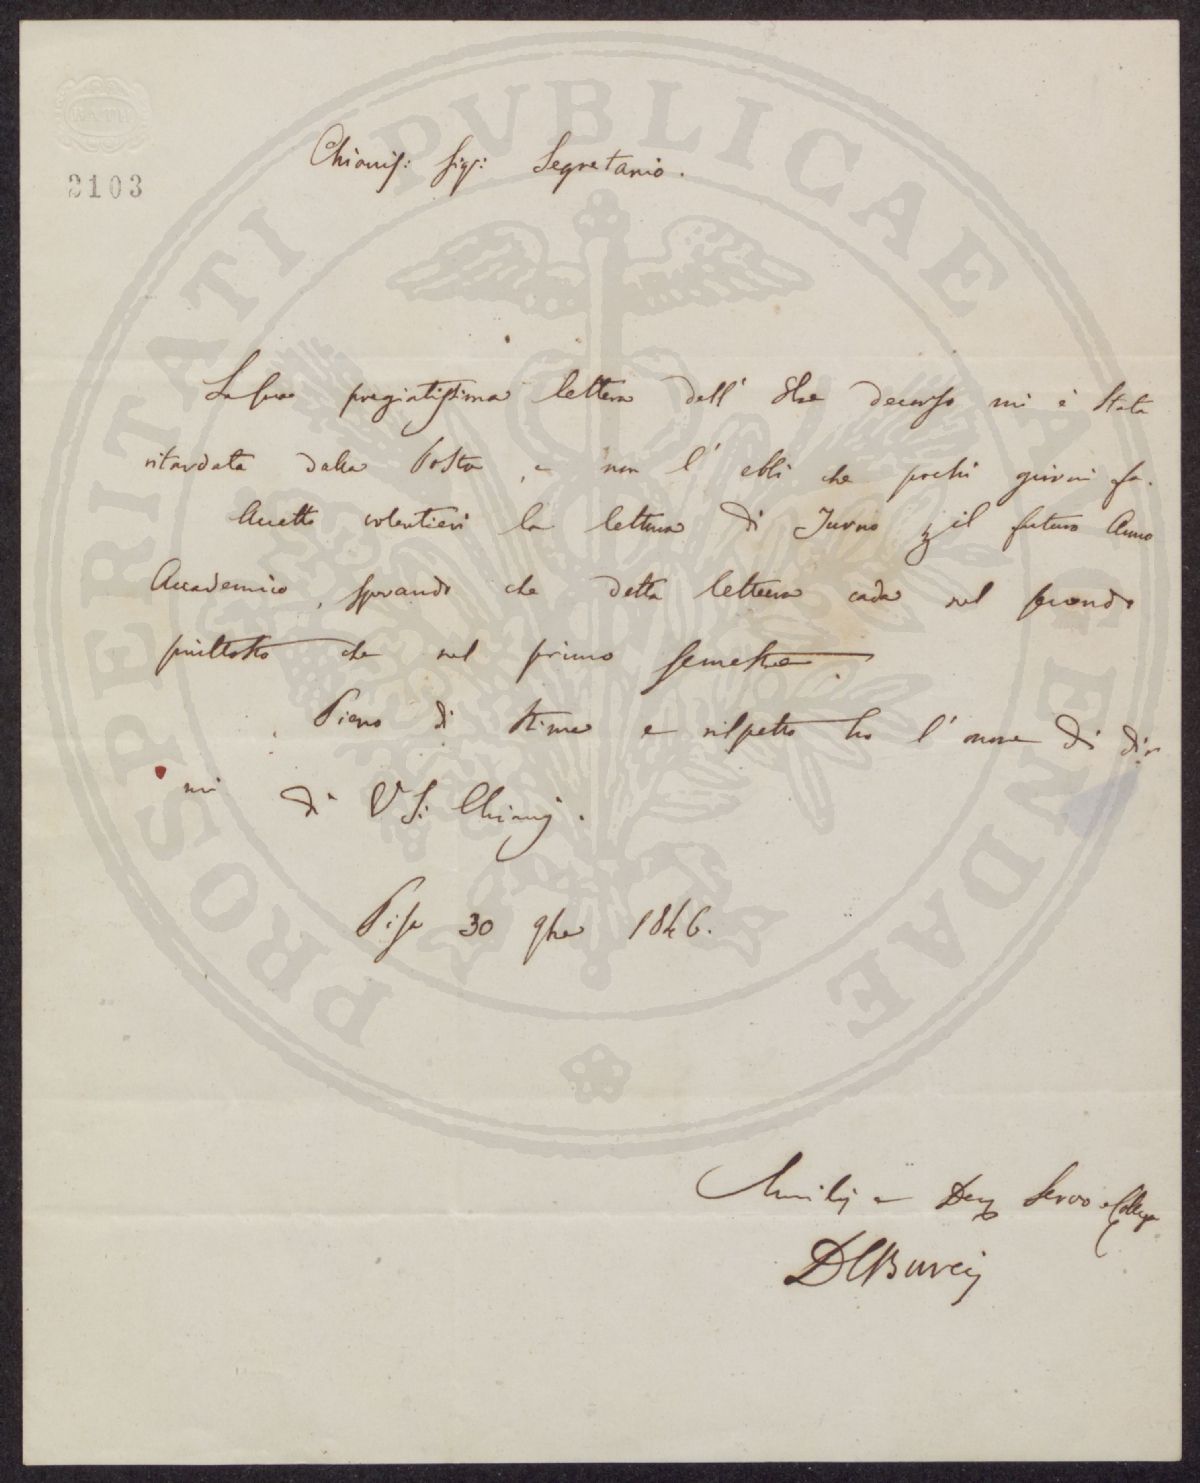 BATH
2103
PROSPERITATI PVBLICAE AVGENDAE
Chiariss: Sigr: Segretario.
La sua pregiatissima lettera dell' 8bre decorso mi è stata
ritardata dalla Posta, e non l' ebbi che pochi giorni fa.
Accetto volentieri la lettura di Turno p il futuro Anno
Accademico, sperando che detta lettura cada nel secondo
piuttosto che nel primo semestre.
Pieno di stima e rispetto ho l' onore di dir
mi di V S: Chiariss.
Pisa 30 9bre 1846.
Servo e Collega
D C Burci